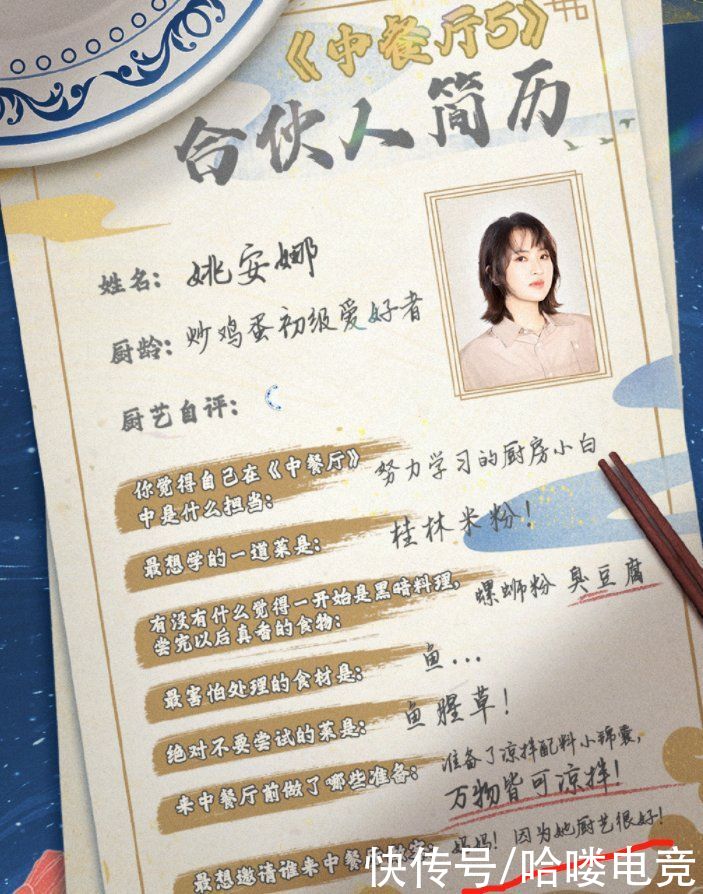 《中餐厅5》
合伙人简历
姓名：姚安娜
厨龄：炒鸡蛋初级爱好者
厨艺自评：
你觉得自己在《中餐厅》
中是什么担当：
努力学习的厨房小白
最想学的一道菜是：桂林米粉！
有没有什么觉得一开始是黑暗料理，
尝完以后真香的食物：
螺蛳粉 臭豆腐
最害怕处理的食材是：鱼...
绝对不要尝试的菜是：鱼腥草！
来中餐厅前做了哪些准备：准备了凉拌配料小锦囊，
万物皆可凉拌！
最想邀请谁来中餐厅
妈妈！因为她厨艺很好！
快传号/哈喽电竞